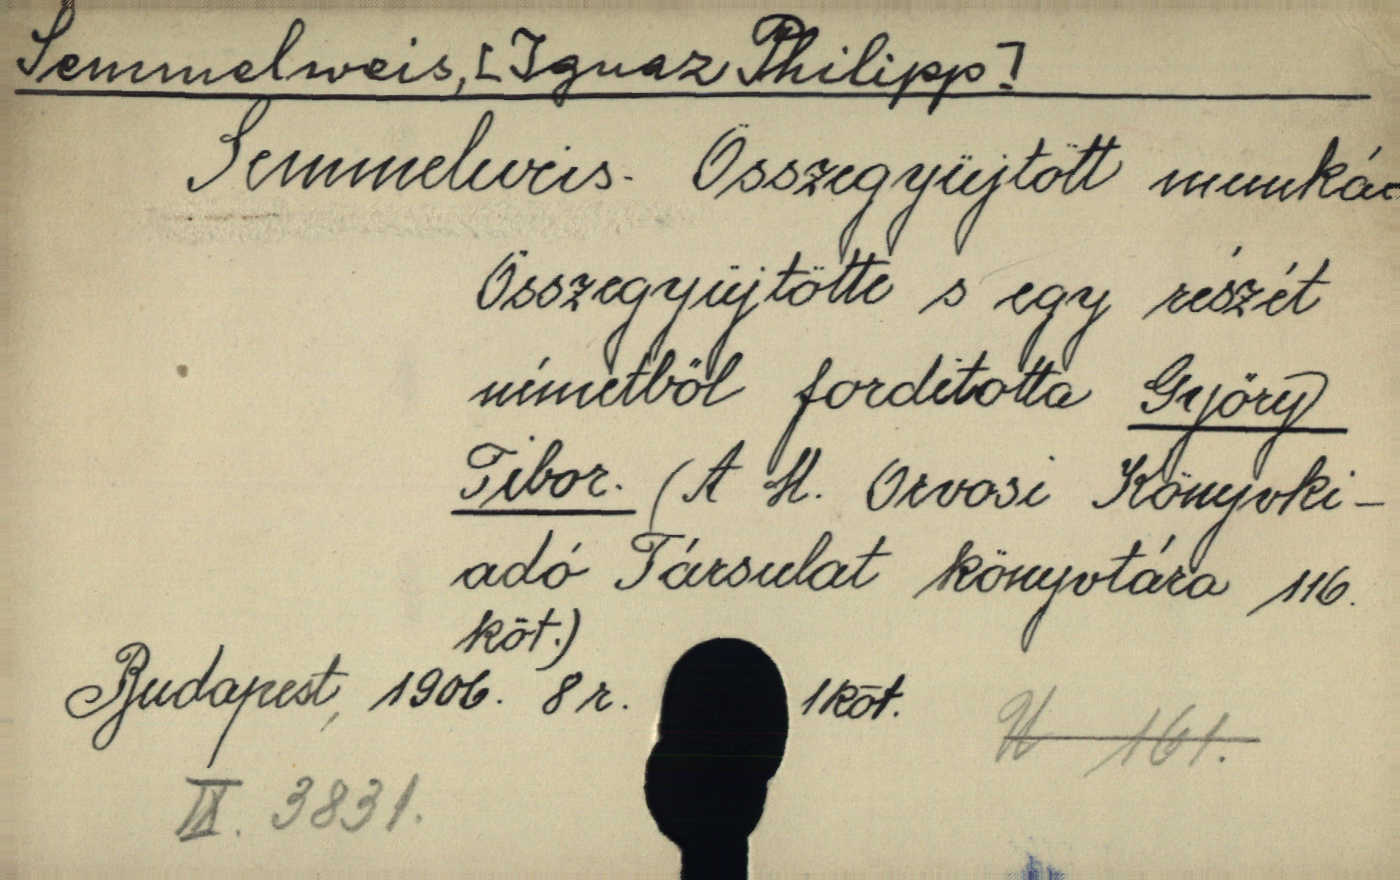 Semmelweis, [Ignaz Philipp]
Semmelweis. Összegyüjtött munkái
Összegyüjtötte s egy részét
németből fordította Győry
Tibor. (A M. Orvosi Könyvki-
adó Társulat könyvtára 116.
köt.)
Budapest, 1906. 8 r. 1 köt.
U 161.
IX. 3831.